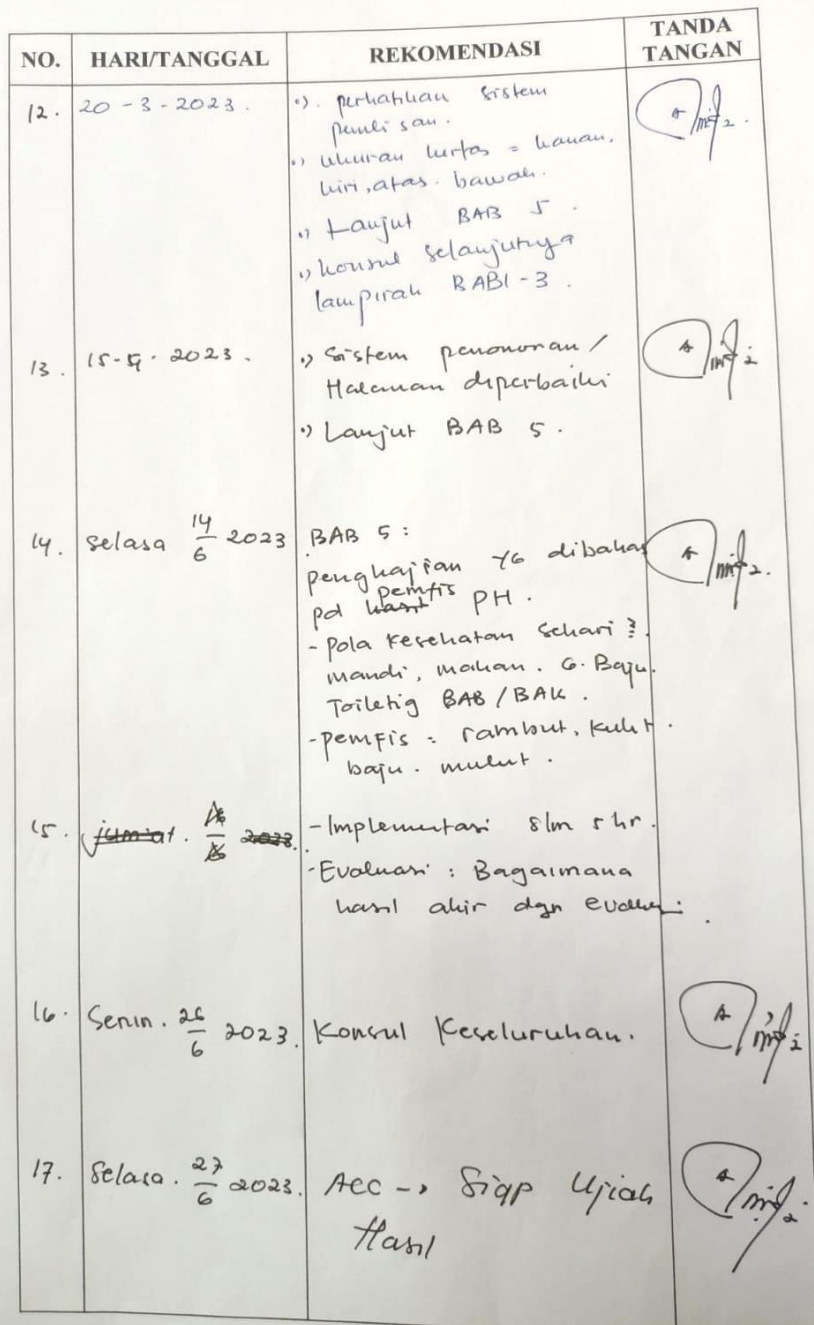 NO. HARI/TANGGAL REKOMENDASI TANDA TANGAN
12. 20-3-2023. •). perhatikan sistem
penulisan.
•) ukuran kertas = kanan,
kiri, atas. bawah.
•) Lanjut BAB 5.
•) konsul selanjutnya
lampirah BAB1-3.
13. 15-5-2023. •) Sistem penomoran /
Halaman diperbaiki
•) Lanjut BAB 5.
14. Selasa 14/6 2023 BAB 5:
pengkajian yg dibahas
pd hasil pemfis PH.
- Pola kesehatan sehari
mandi, makan. G. Baju.
Toiletig BAB/BAK.
- pemfis = rambut, kulit.
baju. mulut.
15. jum'at. 2023. - Implementasi slm 5 hr.
- Evaluasi : Bagaimana
hasil ahir dgn
16. Senin. 26/6 2023. Konsul Keseluruhan.
17. Selasa. 27/6 2023. Acc -> Siap Ujian
Hasil